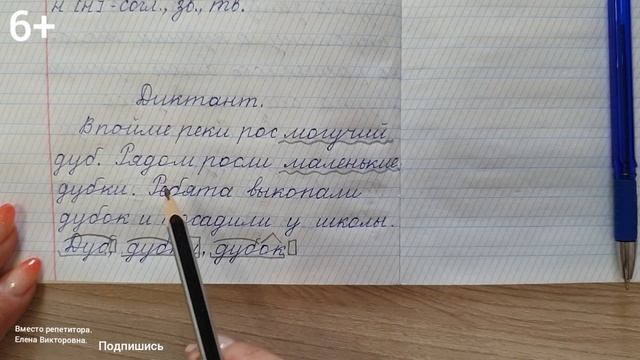 6+
н [н] - согл., зв., тв.
Диктант.
В пойме реки рос могучий
дуб. Рядом росли маленькие
дубки. Ребята выкопали
дубок и посадили у школы.
Дуб, дубки, дубок
Вместо репетитора.
Елена Викторовна.
Подпишись